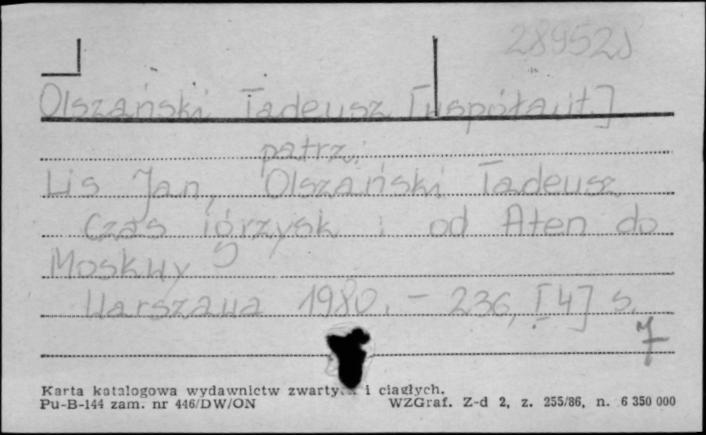 28952J
Olszański Tadeusz [współaut.]
patrz:
Lis Jan, Olszański Tadeusz
Czas igrzysk : od Aten do
Moskwy
Warszawa 1980. - 236, [4] s.
7
Karta katalogowa wydawnictw zwartych i ciągłych.
Pu-B-144 zam. nr 446/DW/ON WZGraf. Z-d 2, z. 255/86, n. 6 350 000